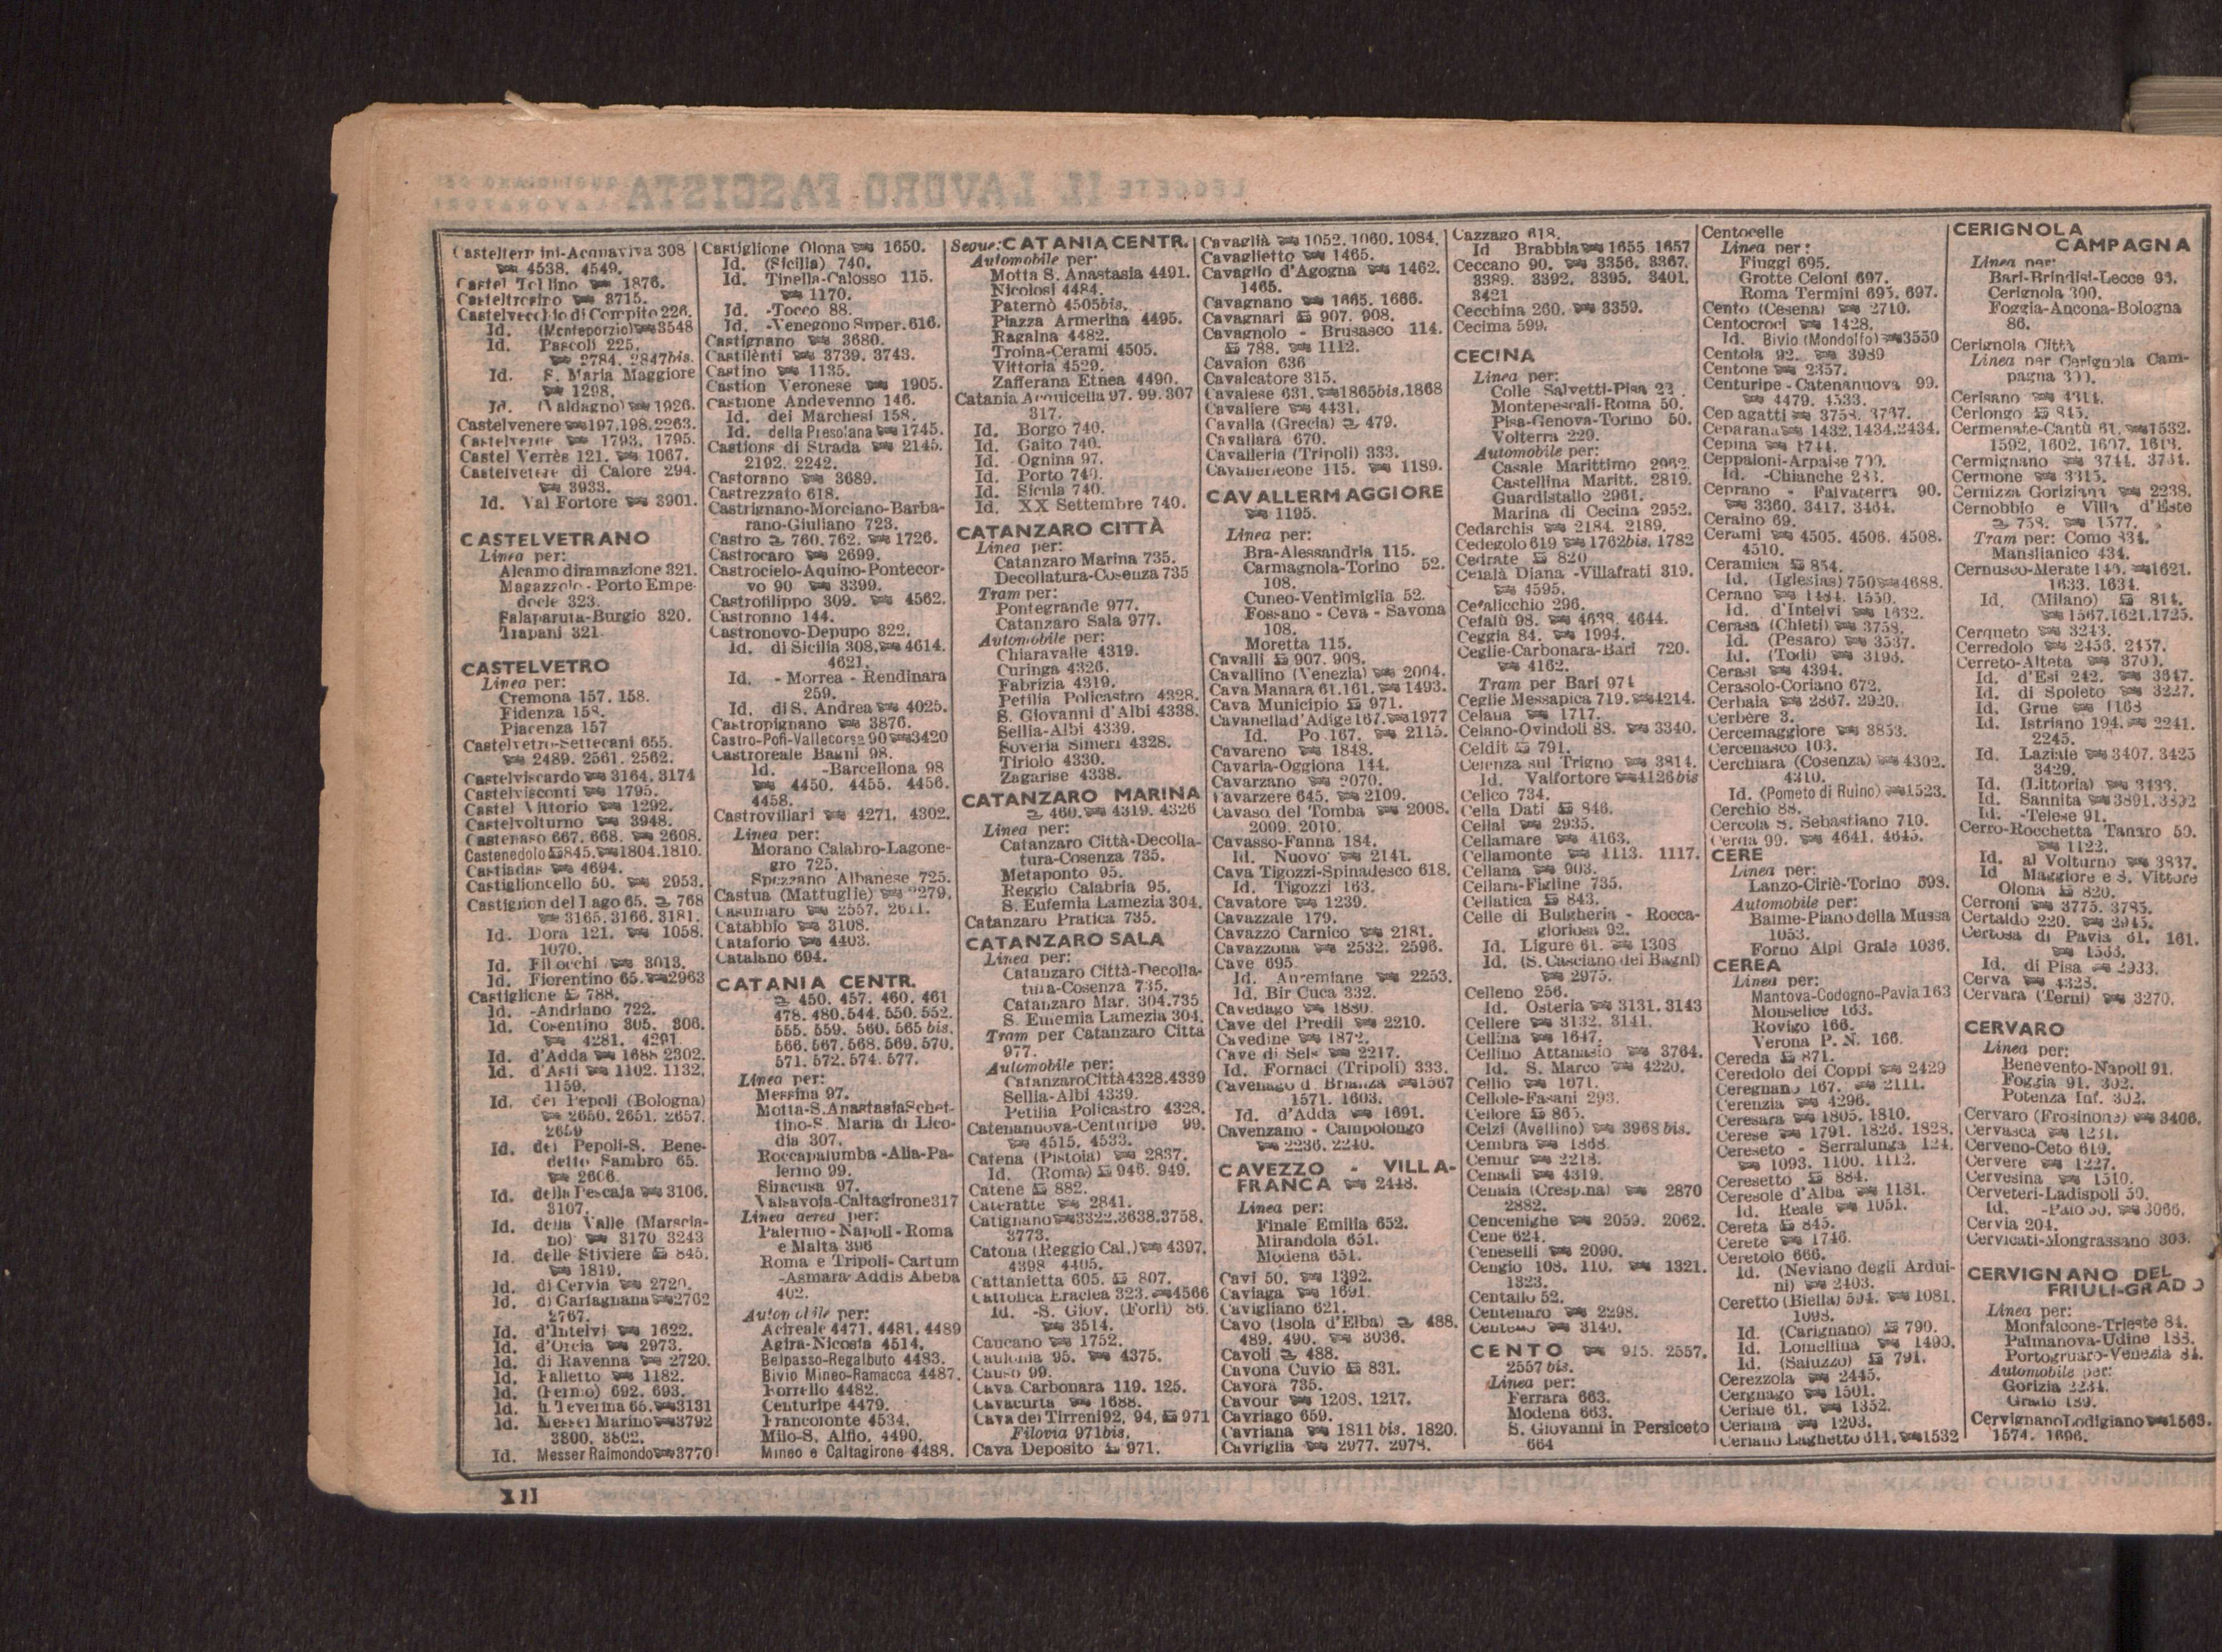 Castelterrini-Acquaviva 308
4538. 4549.
1876.
3715.
Castelvecchio di Compito 226.
Id. (Monteporzio) 3548
Id. Pascoli 225.
2784. 2847bis.
Id. S. Maria Maggiore
1298.
Id. (Valdagno) 1926.
Castelvenere 197.198.2263.
Castelverde 1793. 1795.
Castel Verrès 121. 1067.
Castelvetere di Calore 294.
3933.
Id. Val Fortore 3901.
CASTELVETRANO
Linea per:
Alcamo diramazione 321.
Magazzolo - Porto Empe-
docle 323.
Salaparuta-Burgio 320.
Trapani 321.
CASTELVETRO
Linea per:
Cremona 157. 158.
Fidenza 158.
Piacenza 157
Castelvetro-Settecani 655.
2489. 2561. 2562.
Castelviscardo 3164. 3174
Castelvisconti 1795.
Castel Vittorio 1292.
Castelvolturno 3948.
Castenaso 667. 668. 2608.
Castenedolo 845. 1804.1810.
Castiadas 4694.
Castiglioncello 50. 2953.
Castiglion del Lago 65. 768
3165. 3166. 3181.
Id. Dora 121. 1058.
1070.
Id. Fibocchi 3013.
Id. Fiorentino 65. 2963
Castiglione 788.
Id. -Andriano 722.
Id. Cosentino 305. 306.
4281. 4291
Id. d'Adda 1688 2302.
Id. d'Asti 1102. 1132.
1159.
Id. dei Pepoli (Bologna)
2650. 2651. 2657.
2659
Id. dei Pepoli-S. Bene-
detto Sambro 65.
2606.
Id. della Pescaja 3106.
3107.
Id. della Valle (Marscia-
no) 3170 3243
Id. delle Stiviere 845.
1819.
Id. di Cervia 2720.
Id. di Garfagnana 2762
2767.
Id. d'Intelvi 1622.
Id. d'Orcia 2973.
Id. di Ravenna 2720.
Id. Falletto 1182.
Id. (Fermo) 692. 693.
Id. in Teverina 65. 3131
Id. Messer Marino 3792
3800. 3802.
Id. Messer Raimondo 3770
Castiglione Olona 1650.
Id. (Sicilia) 740.
Id. Tinella-Calosso 115.
1170.
Id. -Tocco 88.
Id. -Venegono Super. 616.
Castignano 3680.
Castilènti 3739. 3743.
Castino 1135.
Castion Veronese 1905.
Castione Andevenno 146.
Id. dei Marchesi 158.
Id. della Presolana 1745.
Castions di Strada 2145.
2192. 2242.
Castorano 3689.
Castrezzato 618.
Castrignano-Morciano-Barba-
rano-Giuliano 723.
Castro 760. 762. 1726.
Castrocaro 2699.
Castrocielo-Aquino-Pontecor-
vo 90 3399.
Castrofilippo 309. 4562.
Castronno 144.
Castronovo-Depupo 322.
Id. di Sicilia 308. 4614.
4621.
Id. - Morrea - Rendinara
259.
Id. di S. Andrea 4025.
Castropignano 3876.
Castro-Pofi-Vallecorsa 90 3420
Castroreale Bagni 98.
Id. -Barcellona 98
4450. 4455. 4456.
4458.
Castrovillari 4271. 4302.
Linea per:
Morano Calabro-Lagone-
gro 725.
Spezzano Albanese 725.
Castua (Mattuglie) 2279.
Casumaro 2557. 2611.
Catabbio 3108.
Cataforio 4403.
Catalano 694.
CATANIA CENTR.
450. 457. 460. 461
478. 480. 544. 550. 552.
555. 559. 560. 565 bis.
566. 567. 568. 569. 570.
571. 572. 574. 577.
Linea per:
Messina 97.
Motta-S. Anastasia Schet-
tino-S. Maria di Lico-
dia 307.
Roccapalumba -Alia-Pa-
lermo 99.
Siracusa 97.
Valsavoia-Caltagirone 317
Linea aerea per:
Palermo - Napoli - Roma
e Malta 396
Roma e Tripoli-Cartum
-Asmara-Addis Abeba
402.
Automobile per:
Acireale 4471. 4481. 4489
Agira-Nicosia 4514.
Belpasso-Regalbuto 4483.
Bivio Mineo-Ramacca 4487.
Borrello 4482.
Centuripe 4479.
Francofonte 4534.
Milo-S. Alfio. 4490.
Mineo e Caltagirone 4488.
Segue: CATANIA CENTR.
Automobile per:
Motta S. Anastasia 4491.
Nicolosi 4484.
Paternò 4505bis.
Piazza Armerina 4495.
Ragalna 4482.
Troina-Cerami 4505.
Vittoria 4529.
Zafferana Etnea 4490.
Catania Acquicella 97. 99. 307
317.
Id. Borgo 740.
Id. Gaito 740.
Id. Ognina 97.
Id. Porto 740.
Id. Sicula 740.
Id. XX Settembre 740.
CATANZARO CITTÀ
Linea per:
Catanzaro Marina 735.
Decollatura-Cosenza 735
Tram per:
Pontegrande 977.
Catanzaro Sala 977.
Automobile per:
Chiaravalle 4319.
Curinga 4326.
Fabrizia 4319.
Petilia Policastro 4328.
S. Giovanni d'Albi 4338.
Sellia-Albi 4339.
Soveria Simeri 4328.
Tiriolo 4330.
Zagarise 4338.
CATANZARO MARINA
460. 4319. 4326
Linea per:
Catanzaro Città-Decolla-
tura-Cosenza 735.
Metaponto 95.
Reggio Calabria 95.
S. Eufemia Lamezia 304.
Catanzaro Pratica 735.
CATANZARO SALA
Linea per:
Catanzaro Città-Decolla-
tura-Cosenza 735.
Catanzaro Mar. 304.735
S. Eufemia Lamezia 304.
Tram per Catanzaro Città
977.
Automobile per:
Catanzaro Città 4328.4339
Sellia-Albi 4339.
Petilia Policastro 4328.
Catenanuova-Centuripe 99.
4515. 4533.
Catena (Pistoia) 2837.
Id. (Roma) 946. 949.
Catene 882.
Cateratte 2841.
Catignano 3322.3638.3758.
3773.
Catona (Reggio Cal.) 4397.
4398 4405.
Cattanietta 605. 807.
Cattolica Eraclea 323. 4566
Id. -S. Giov. (Forlì) 86.
3514.
Caucano 1752.
Caulonia 95. 4375.
Causo 99.
Cava Carbonara 119. 125.
Cavacurta 1688.
Cava dei Tirreni 92. 94. 971
Filovia 971bis.
Cava Deposito 971.
Cavaglià 1052. 1060. 1084.
Cavaglietto 1465.
Cavaglio d'Agogna 1462.
1465.
Cavagnano 1665. 1666.
Cavagnari 907. 908.
Cavagnolo - Brusasco 114.
788. 1112.
Cavaion 636
Cavalcatore 315.
Cavalese 631. 1865bis. 1868
Cavaliere 4431.
Cavalla (Grecia) 479.
Cavallara 670.
Cavalleria (Tripoli) 333.
Cavallerleone 115. 1189.
CAVALLERMAGGIORE
1195.
Linea per:
Bra-Alessandria 115.
Carmagnola-Torino 52.
108.
Cuneo-Ventimiglia 52.
Fossano - Ceva - Savona
108.
Moretta 115.
Cavalli 907. 908.
Cavallino (Venezia) 2004.
Cava Manara 61. 161. 1493.
Cava Municipio 971.
Cavanella d'Adige 167. 1977
Id. Po 167. 2115.
Cavareno 1848.
Cavaria-Oggiona 144.
Cavarzano 2070.
Cavarzere 645. 2109.
Cavaso del Tomba 2008.
2009. 2010.
Cavasso-Fanna 184.
Id. Nuovo 2141.
Cava Tigozzi-Spinadesco 618.
Id. Tigozzi 163.
Cavatore 1239.
Cavazzale 179.
Cavazzo Carnico 2181.
Cavazzona 2532. 2596.
Cave 695.
Id. Auremiane 2253.
Id. Bir Cuca 332.
Cavedago 1880.
Cave del Predil 2210.
Cavedine 1872.
Cave di Sels 2217.
Id. Fornaci (Tripoli) 333.
Cavenago d. Brianza 1567
1571. 1603.
Id. d'Adda 1691.
Cavenzano - Campolongo
2236. 2240.
CAVEZZO - VILLA-
FRANCA 2448.
Linea per:
Finale Emilia 652.
Mirandola 651.
Modena 651.
Cavi 50. 1392.
Caviaga 1691.
Cavigliano 621.
Cavo (Isola d'Elba) 488.
489. 490. 3036.
Cavoli 488.
Cavona Cuvio 831.
Cavora 735.
Cavour 1208. 1217.
Cavriago 659.
Cavriana 1811 bis. 1820.
Cavriglia 2977. 2978.
Cazzago 618.
Id Brabbia 1655 1657
Ceccano 90. 3356. 3367.
3389. 3392. 3395. 3401.
3421
Cecchina 260. 3359.
Cecima 599.
CECINA
Linea per:
Colle Salvetti-Pisa
Montepescali-Roma 50.
Pisa-Genova-Torino 50.
Volterra 229.
Automobile per:
Casale Marittimo 2962.
Castellina Maritt. 2819.
Guardistallo 2961.
Marina di Cecina 2952.
Cedarchis 2184. 2189.
Cedegolo 619 1762bis. 1782
Cedrate 820
Cefalà Diana -Villafrati 319.
4595.
Cefalicchio 296.
Cefalù 98. 4638. 4644.
Ceggia 84. 1994.
Ceglie-Carbonara-Bari 720.
4162.
Tram per Bari 974
Ceglie Messapica 719. 4214.
Celana 1717.
Celano-Ovindoli 88. 3340.
Celdit 791.
Celenza sul Trigno 3814.
Id. Valfortore 4126bis
Celico 734.
Cella Dati 846.
Cellai 2935.
Cellamare 4163.
Cellamonte 1113. 1117.
Cellana 903.
Cellara-Figline 735.
Cellatica 843.
Celle di Bulgheria - Rocca-
gloriosa 92.
Id. Ligure 61. 1308
Id. (S. Casciano dei Bagni)
2975.
Celleno 256.
Id. Osteria 3131. 3143
Cellere 3132. 3141.
Cellina 1647.
Cellino Attanasio 3764.
Id. S. Marco 4220.
Cellio 1071.
Cellole-Fasani 293.
Cellore 865.
Celzi (Avellino) 3968bis.
Cembra 1868.
Cemur 2218.
Cenadi 4319.
Cenaia (Cresp.na) 2870
2882.
Cencenighe 2059. 2062.
Cene 624.
Ceneselli 2090.
Cengio 108. 110. 1321.
1323.
Centallo 52.
Centenaro 2298.
Centeno 3140.
CENTO 915. 2557.
2557 bis.
Linea per:
Ferrara 663.
Modena 663.
S. Giovanni in Persiceto
664
Centocelle
Linea per:
Fiuggi 695.
Grotte Celoni 697.
Roma Termini 695. 697.
Cento (Cesena) 2710.
Centocroci 1428.
Id. Bivio (Mondolfo) 3550
Centola 92. 3989
Centone 2357.
Centuripe - Catenanuova 99.
4479. 4533.
Cepagatti 3758. 3767.
Ceparana 1432.1434.2434.
Cepina 1744.
Ceppaloni-Arpaise 700.
Id. -Chianche
Ceprano - Falvaterra 90.
3360. 3417. 3464.
Ceraino 69.
Cerami 4505. 4506. 4508.
4510.
Ceramica 854.
Id. (Iglesias) 750 4688.
Cerano 1484. 1550.
Id. d'Intelvi 1632.
Cerasa (Chieti) 3758.
Id. (Pesaro) 3537.
Id. (Todi) 3198.
Cerasi 4394.
Cerasolo-Coriano 672.
Cerbaia 2867. 2920.
Cerbère 3.
Cercemaggiore 3853.
Cercenasco 103.
Cerchiara (Cosenza) 4302.
4310.
Id. (Pometo di Ruino) 1523.
Cerchio 88.
Cercola S. Sebastiano 710.
Cerda 99. 4641. 4645.
CERE
Linea per:
Lanzo-Ciriè-Torino 598.
Automobile per:
Balme-Piano della Mussa
1053.
Forno Alpi Graie 1036.
CEREA
Linea per:
Mantova-Codogno-Pavia 163
Monselice 163.
Rovigo 166.
Verona P. N. 166.
Cereda 871.
Ceredolo dei Coppi 2429
Ceregnano 167. 2111.
Cerenzia 4296.
Ceresara 1805. 1810.
Cerese 1791. 1826. 1828.
Cereseto - Serralunga 124.
1093. 1100. 1112.
Ceresetto 884.
Ceresole d'Alba 1181.
Id. Reale 1051.
Cereta 845.
Cerete 1746.
Ceretolo 666.
Id. (Neviano degli Ardui-
ni) 2403.
Ceretto (Biella) 594. 1081.
1098.
Id. (Carignano) 790.
Id. Lomellina 1490.
Id. (Saluzzo) 791.
Cerezzola 2445.
Cergnago 1501.
Ceriale 61. 1352.
Ceriana 1293.
Ceriano Laghetto 611. 1532
CERIGNOLA
CAMPAGNA
Linea per:
Bari-Brindisi-Lecce 93.
Cerignola 300.
Foggia-Ancona-Bologna
86.
Cerignola Città
Linea per Cerignola Cam-
pagna 300.
Cerisano 4314.
Cerlongo 845.
Cermenate-Cantù 61. 1532.
1592. 1602. 1607. 1618.
Cermignano 3744. 3764.
Cermone 3315.
Cernizza Goriziana 2238.
Cernobbio e Villa d'Este
758. 1577.
Tram per: Como 834.
Manslianico 434.
Cernusco-Merate 146. 1621.
1633. 1634.
Id. (Milano) 814.
1567.1621.1725.
Cerqueto 3243.
Cerredolo 2456. 2457.
Cerreto-Alteta 3700.
Id. d'Esi 242. 3647.
Id. di Spoleto 3227.
Id. Grue 1168
Id. Istriano 194. 2241.
2245.
Id. Laziale 3407. 3425
3429.
Id. (Littoria) 3433.
Id. Sannita 3891. 3892
Id. -Telese 91.
Cerro-Rocchetta Tanaro 50.
1122.
Id. al Volturno 3837.
Id Maggiore e S. Vittore
Olona 820.
Cerroni 3775. 3785.
Certaldo 220. 2945.
Certosa di Pavia 61. 161.
1533.
Id. di Pisa 2933.
Cerva 4328.
Cervara (Terni) 3270.
CERVARO
Linea per:
Benevento-Napoli 91.
Foggia 91. 302.
Potenza Inf. 302.
Cervaro (Frosinone) 3406.
Cervasca 1231.
Cerveno-Ceto 619.
Cervere 1227.
Cervesina 1510.
Cerveteri-Ladispoli 50.
Id. -Palo 50. 3066.
Cervia 204.
Cervicati-Mongrassano 303.
CERVIGNANO DEL
FRIULI-GRADO
Linea per:
Monfalcone-Trieste 84.
Palmanova-Udine 188.
Portogruaro-Venezia 84.
Automobile per:
Gorizia 2234.
Grado 189.
Cervignano Lodigiano 1563.
1574. 1696.
XII